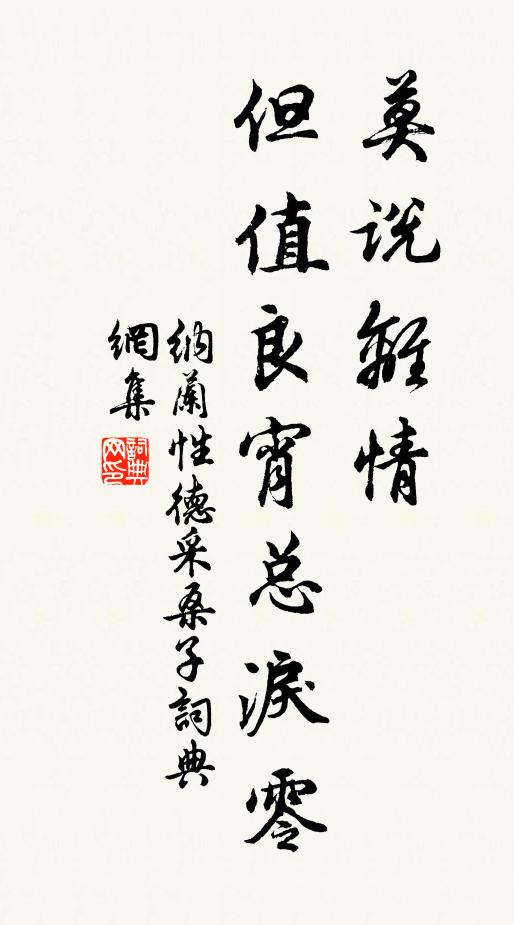 莫说離情
但值良宵总淚零
纳蘭性德采桑子詞典
網集
詞典
网印